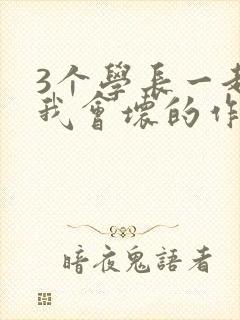 3个學長一
我會壞的作
暗夜鬼語者